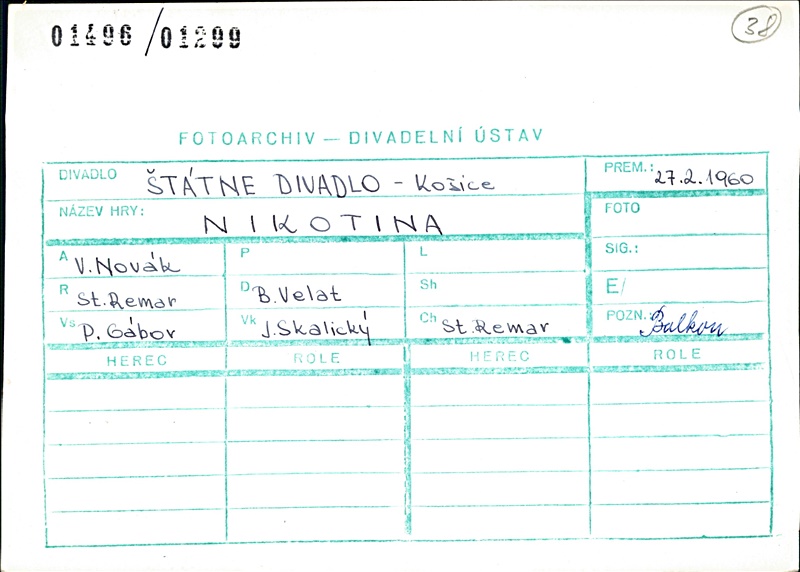 01496/01299
38
FOTOARCHIV — DIVADELNÍ ÚSTAV
DIVADLO ŠTÁTNE DIVADLO - Košice
PREM.: 27.2.1960
NÁZEV HRY: NIKOTINA
FOTO
A V. Novák
P
L
SIG.:
R St. Remar
D B. Velat
Sh
E/
Vs P. Gábor
Vk J. Skalický
Ch St. Remar
POZN.: Balkon
HEREC ROLE HEREC ROLE